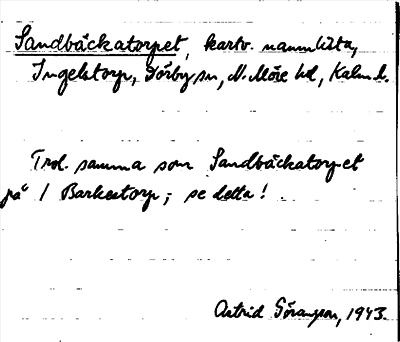 Sandbäckatorpet, kartv. namnlista,
Ingelstorp, Dörby sn, N. Möre hd, Kalm. l.
Trol. samma som Sandbäckatorpet
på 1 Barkestorp; se detta!
Astrid Göransson, 1943.